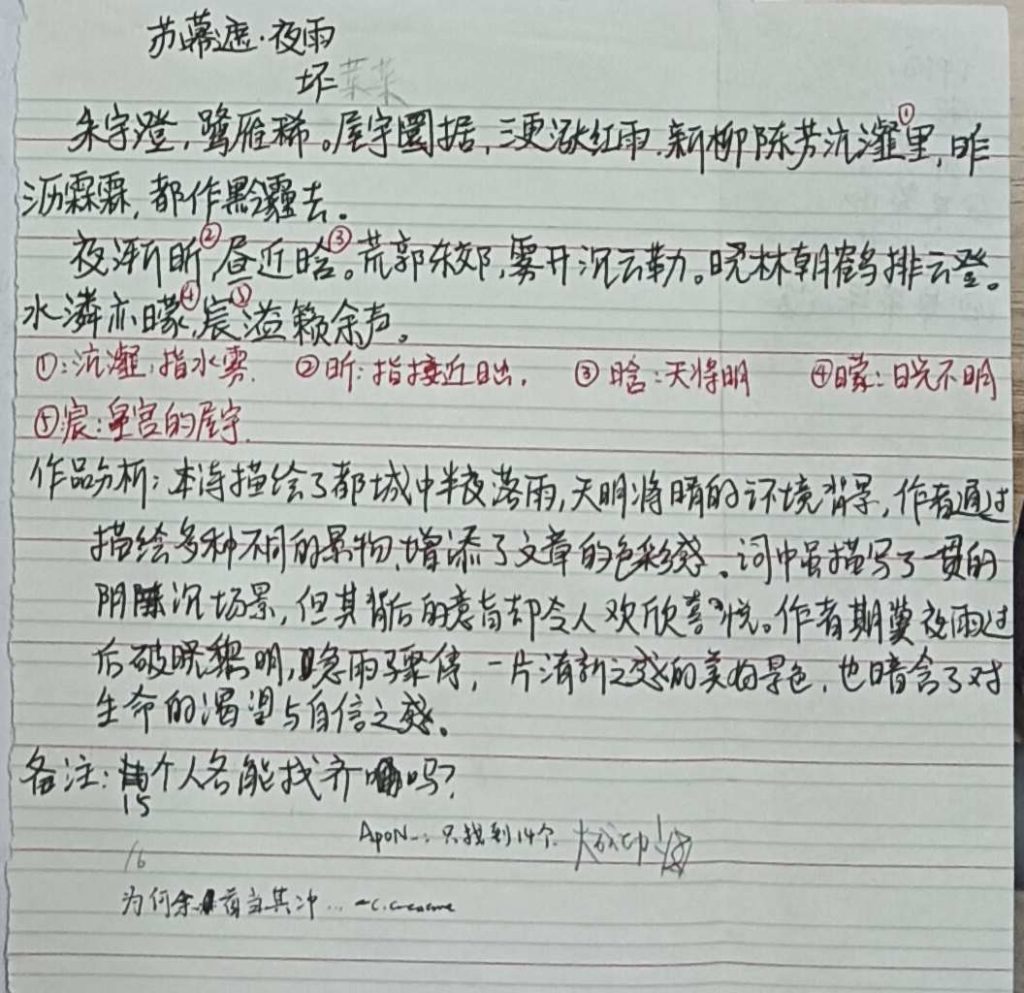 苏幕遮·夜雨
坏菜菜
朱宇澄,鹭雁稀。屋宇圜据,三更涨红雨.新柳陈芳沆瀣①里,昨
沥霖霖,都作黔霾去。
夜渐昕②,昼近晗③。荒郭东郊,雾开沉云勒。晓林朝鹤排云登。
水潾亦曚④,宸⑤溢籁余声。
①:沆瀣:指水雾. ②昕:指接近日出. ③晗:天将明 ④曚:日光不明
⑤宸:皇宫的屋宇.
作品分析:本诗描绘了都城中半夜落雨,天明将晴的环境背景,作者通过
描绘多种不同的景物,增添了文章的色彩感.词中虽描写了一贯的
阴沉场景,但其背后的意旨却令人欢欣喜悦。作者期冀夜雨过
后破晓黎明,急雨骤停,一片清新之感的美好景色,也暗含了对
生命的渴望与自信之感.
备注:15个人名能找齐吗?
ApoN-:只找到14个.
16
为何余首当其冲...